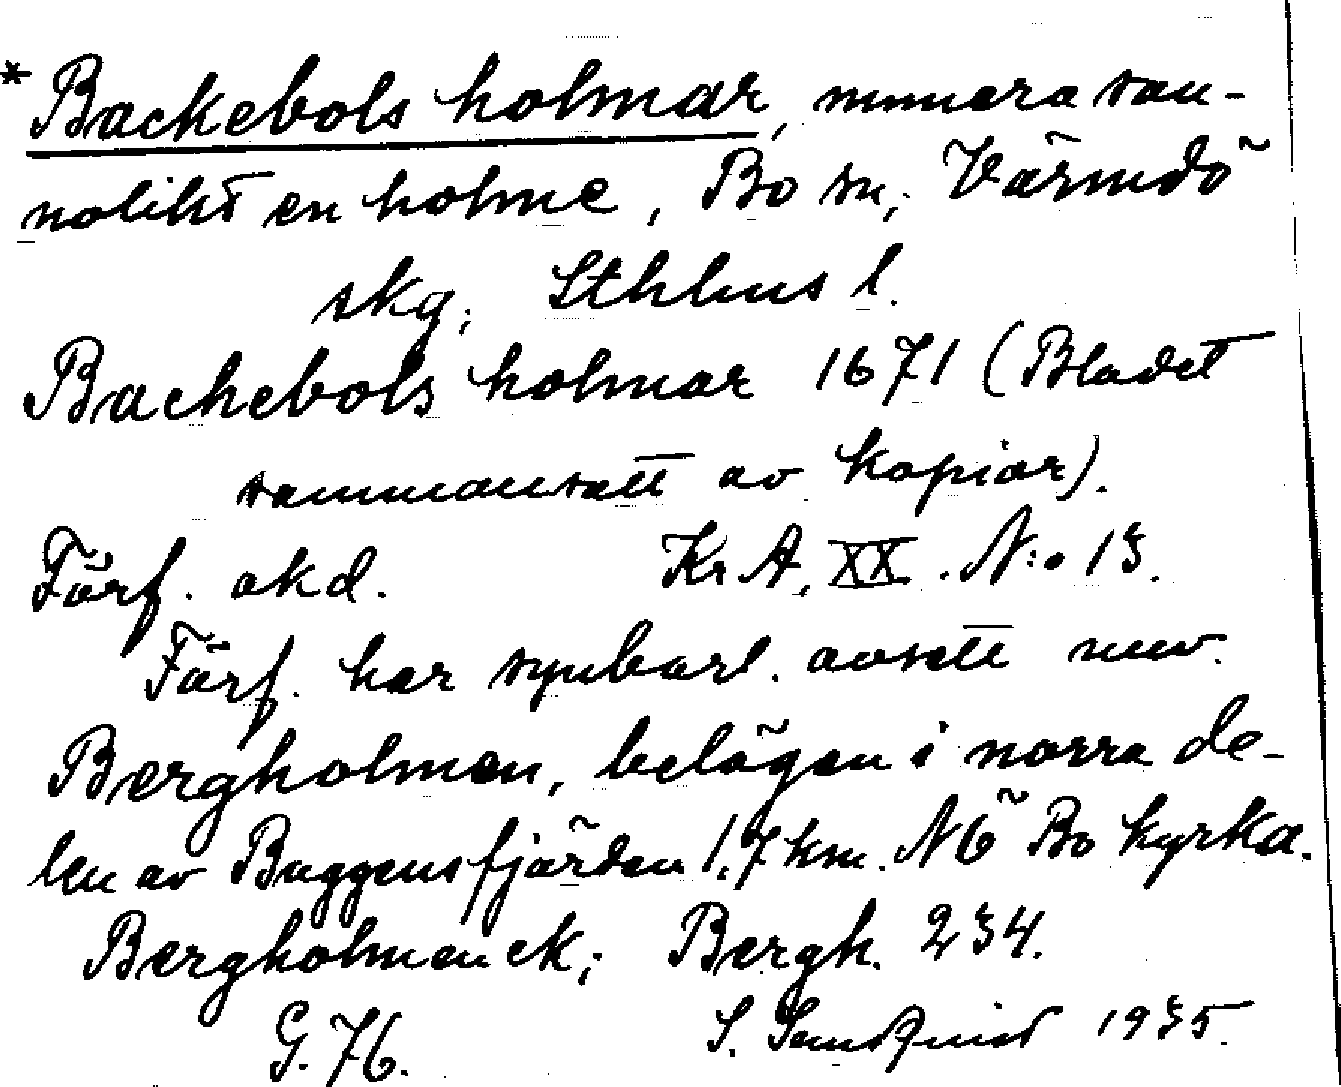 * Backebols holmar, numera san-
nolikt en holme, Bo sn, Värmdö
skg; Sthlms l.
Backebols holmar 1671 (Bladet
sammansatt av kopior).
Förf. okd. Kr A, XX. N:o 13.
Förf. har synbarl. avsett nuv.
Bergholmen, belägen i norra de-
len av Baggensfjärden 1,7 km. NÖ Bo kyrka.
Bergholmen ek; Bergh. 234.
G. 76. S. Sandquist 1935.